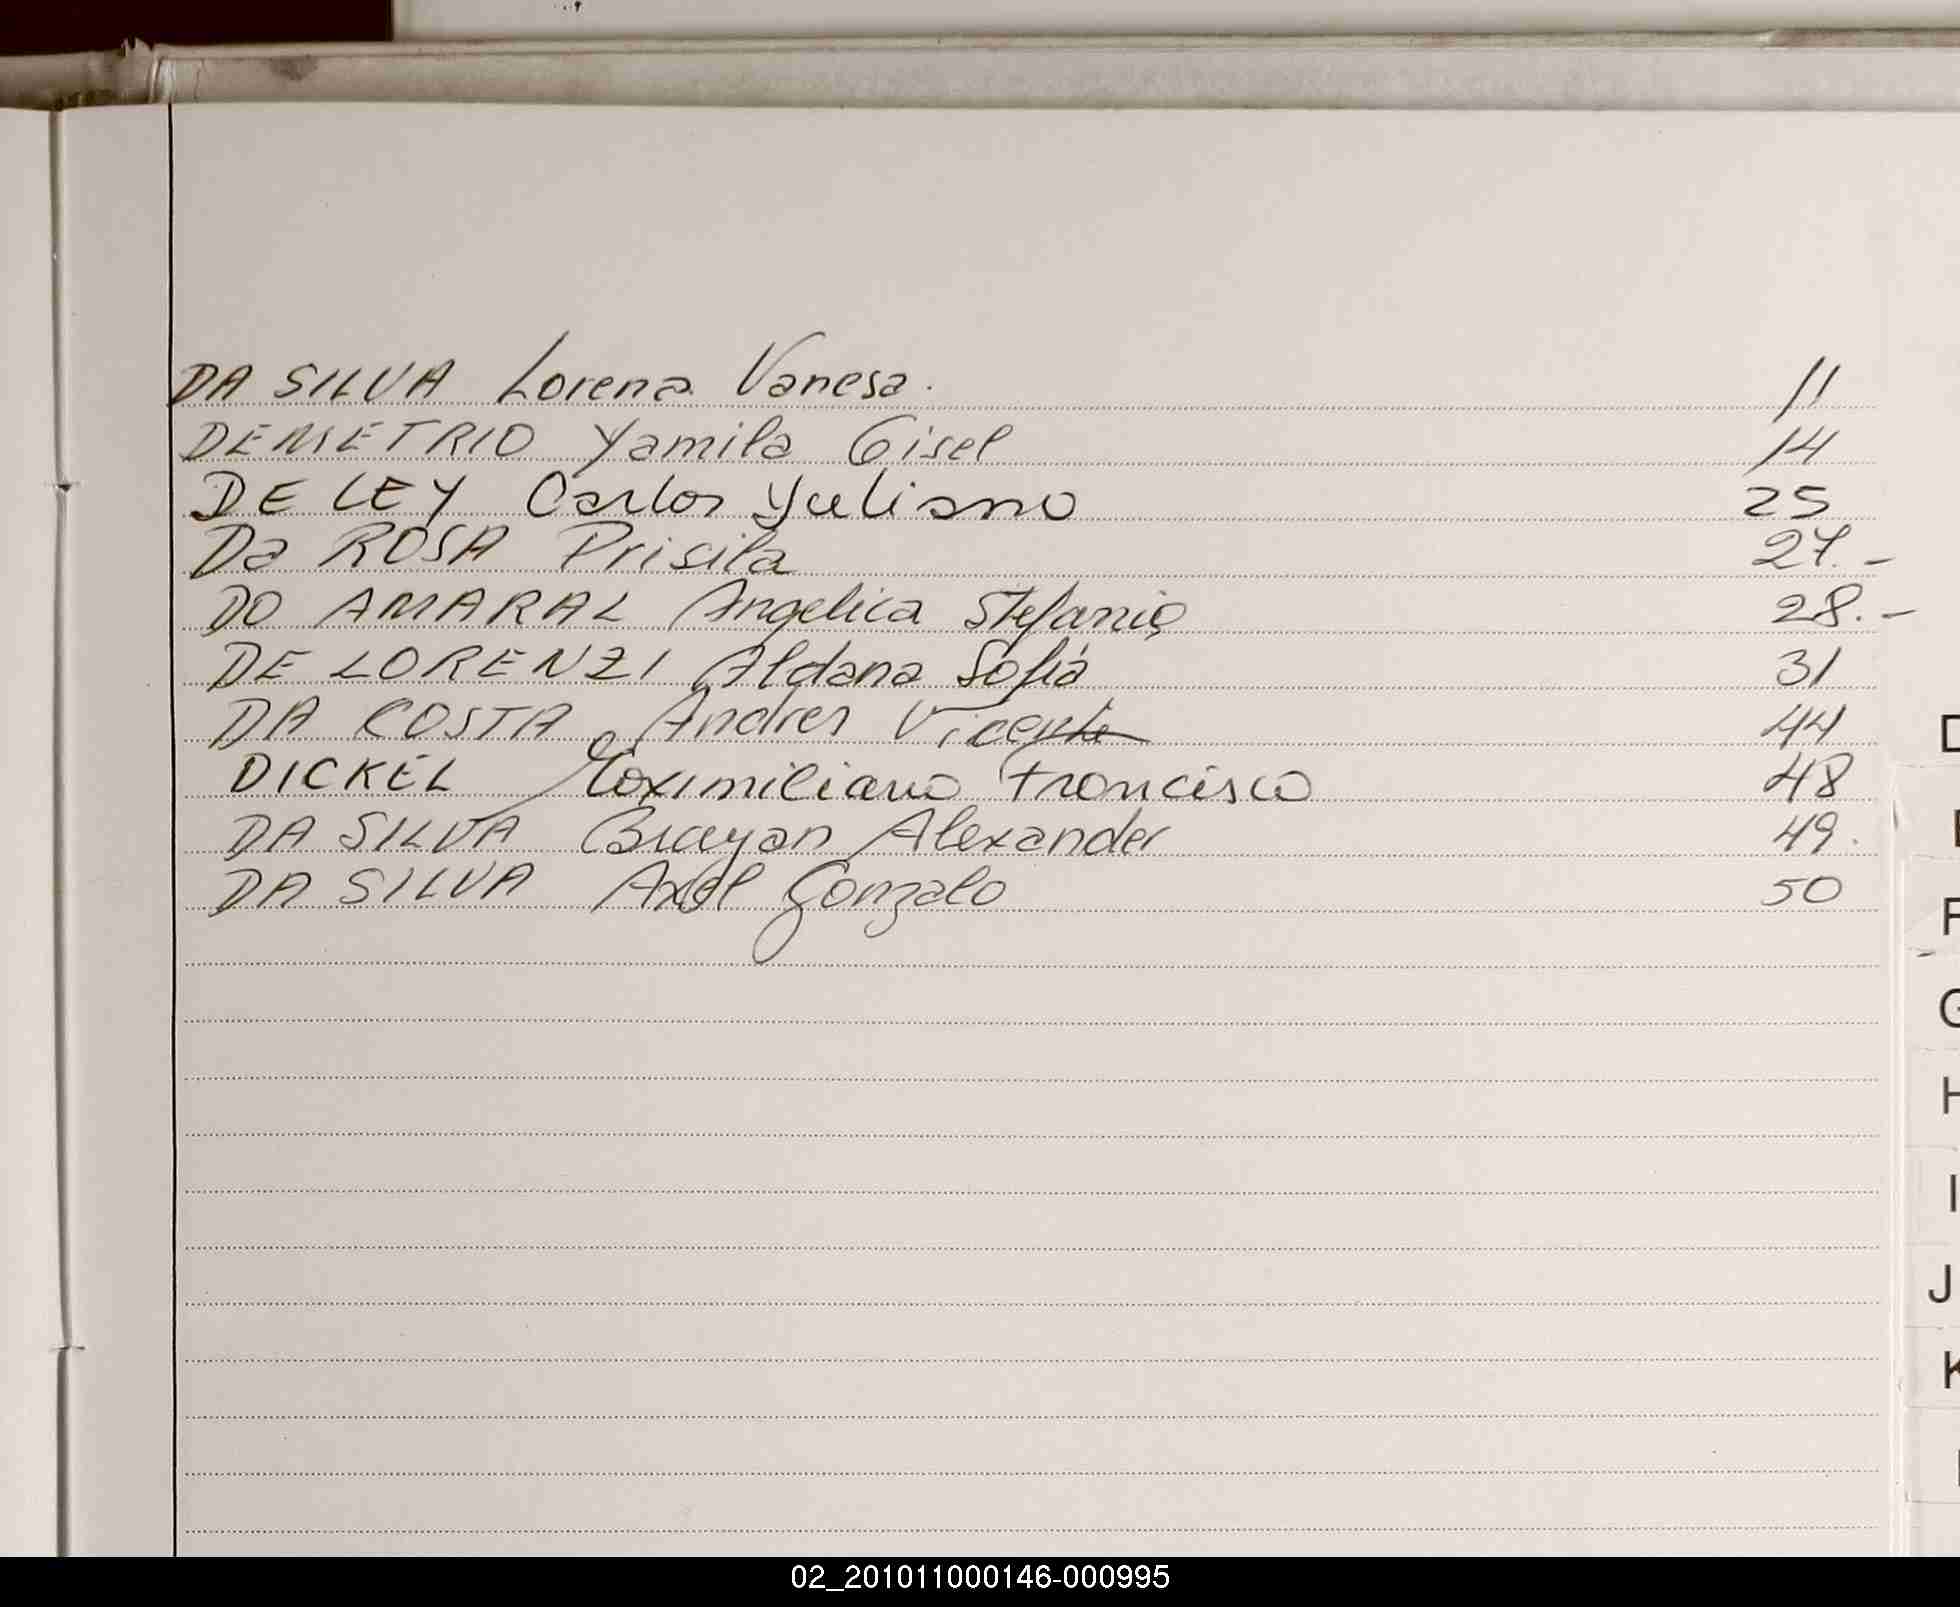 DA SILVA Lorena Vanesa. 11
DEMETRIO Yamila Gisel 14
DE LEY Carlos Yuliano 25
Da ROSA Prisila 27.-
DO AMARAL Angelica Stefania 28.-
DE LORENZI Aldana Sofia 31
DA COSTA Andres Vicente 44
DICKEL Maximiliano Francisco 48
DA SILVA Brayan Alexander 49.
DA SILVA Axel Gonzalo 50
D
F
G
H
I
J
K
02_201011000146-000995